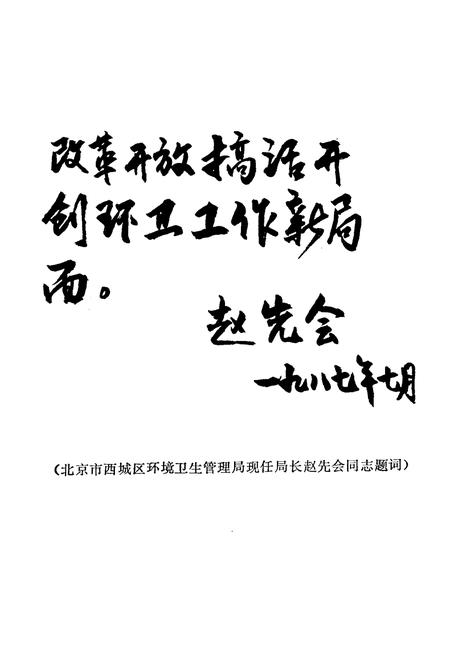 改革开放搞活开
创环卫工作新局
面。
赵先会
一九八七年七月
（北京市西城区环境卫生管理局现任局长赵先会同志题词）